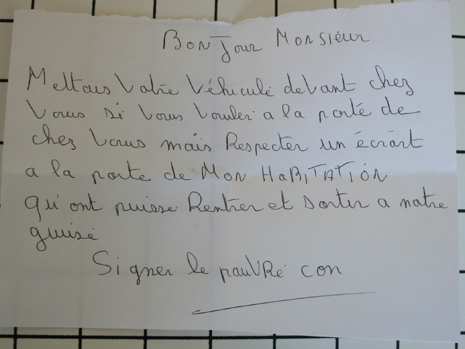 Bonjour Monsieur
Mettais Votre Véhiculé devant chez
Vous si Vous Vouler a la porté de
chez Vous mais Respecter un écrart
a la porte de MON HABITATION
Qu'ont puisse Rentrer et sortir a notre
guisé
Signer le pauVRé con